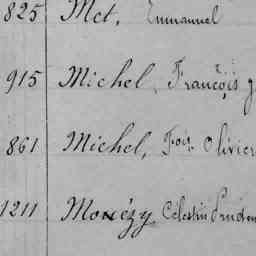 825 Met, Emmanuel
915 Michel, François
861 Michel, Foiz Olivier
1211 Monézy Célestin Pruden